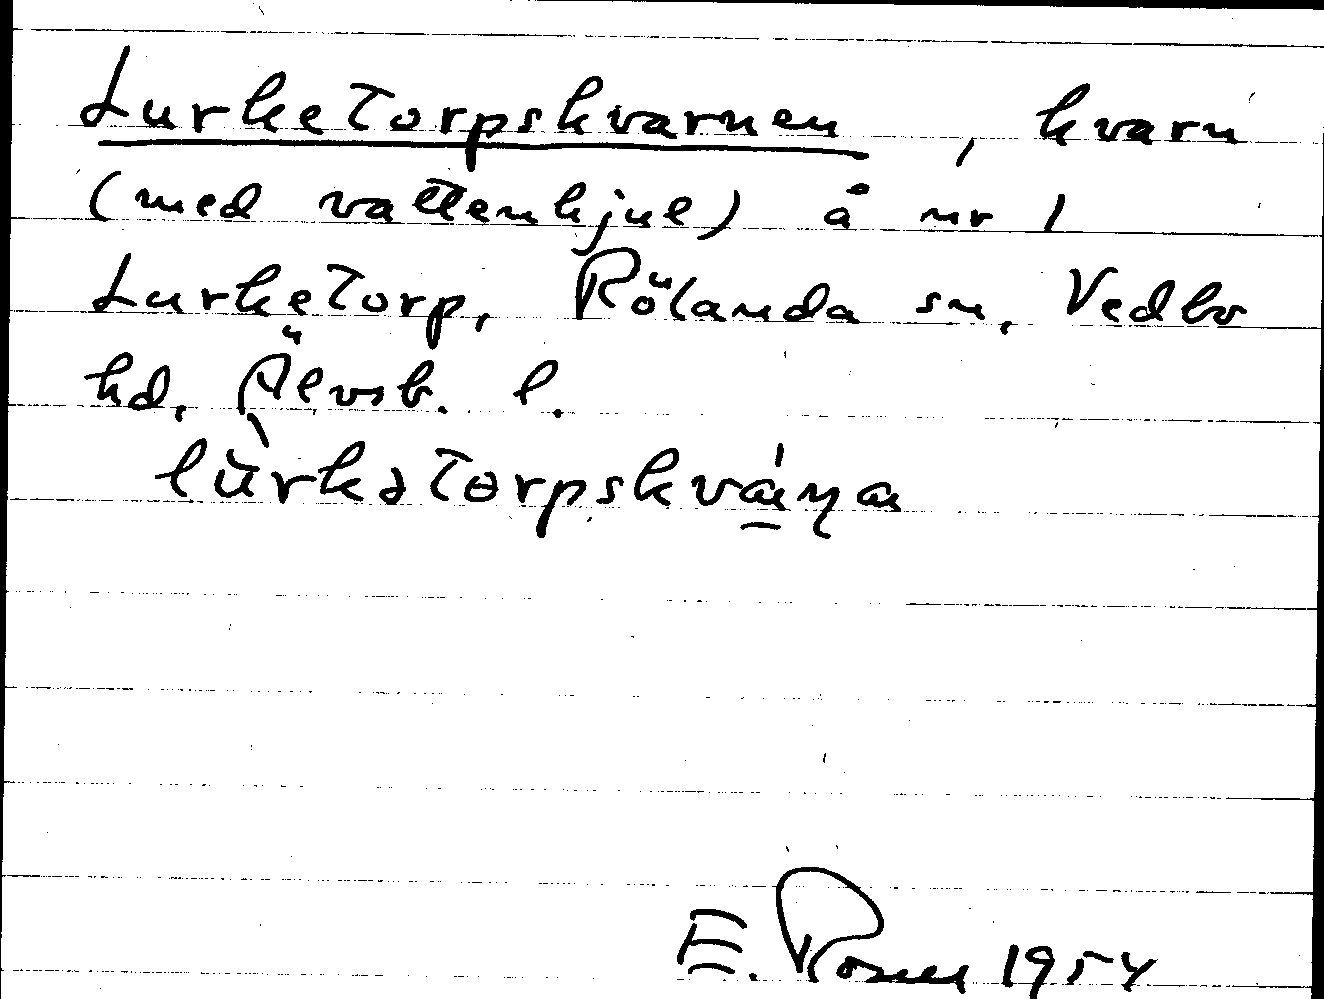 Lurketorpskvarnen, kvarn
(med vattenhjul) å nr 1
Lurketorp, Rölanda sn, Vedbo
hd, Älvsb. l.
lùrkətɵrpskvá̱ɳa
E. Rosell 1954